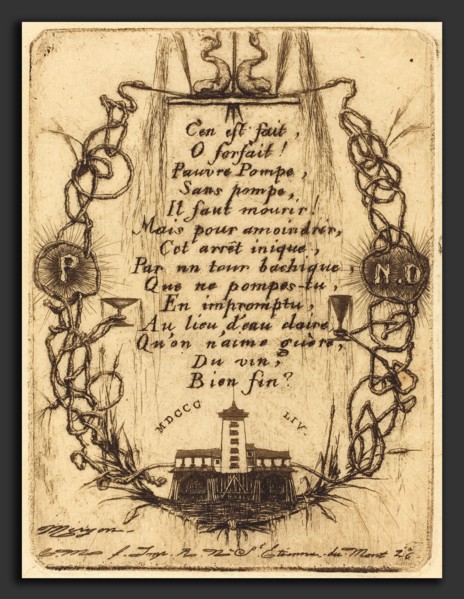 C'en est fait,
O forfait!
Pauvre Pompe,
Sans pompe,
Il faut mourir!
Mais pour amoindrir,
Cet arrêt inique,
Par un tour bachique,
Que ne pompes-tu,
En impromptu,
Au lieu d'eau claire,
Qu'on n'aime guère,
Du vin,
Bien fin?
P
N.D
MDCCC LIV.
Meryon
f. Imp. R. Ne St Etienne-du-Mont 26